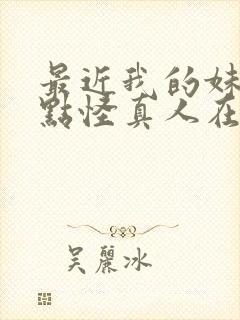 最近我的妹
點怪真人在
吴麗冰